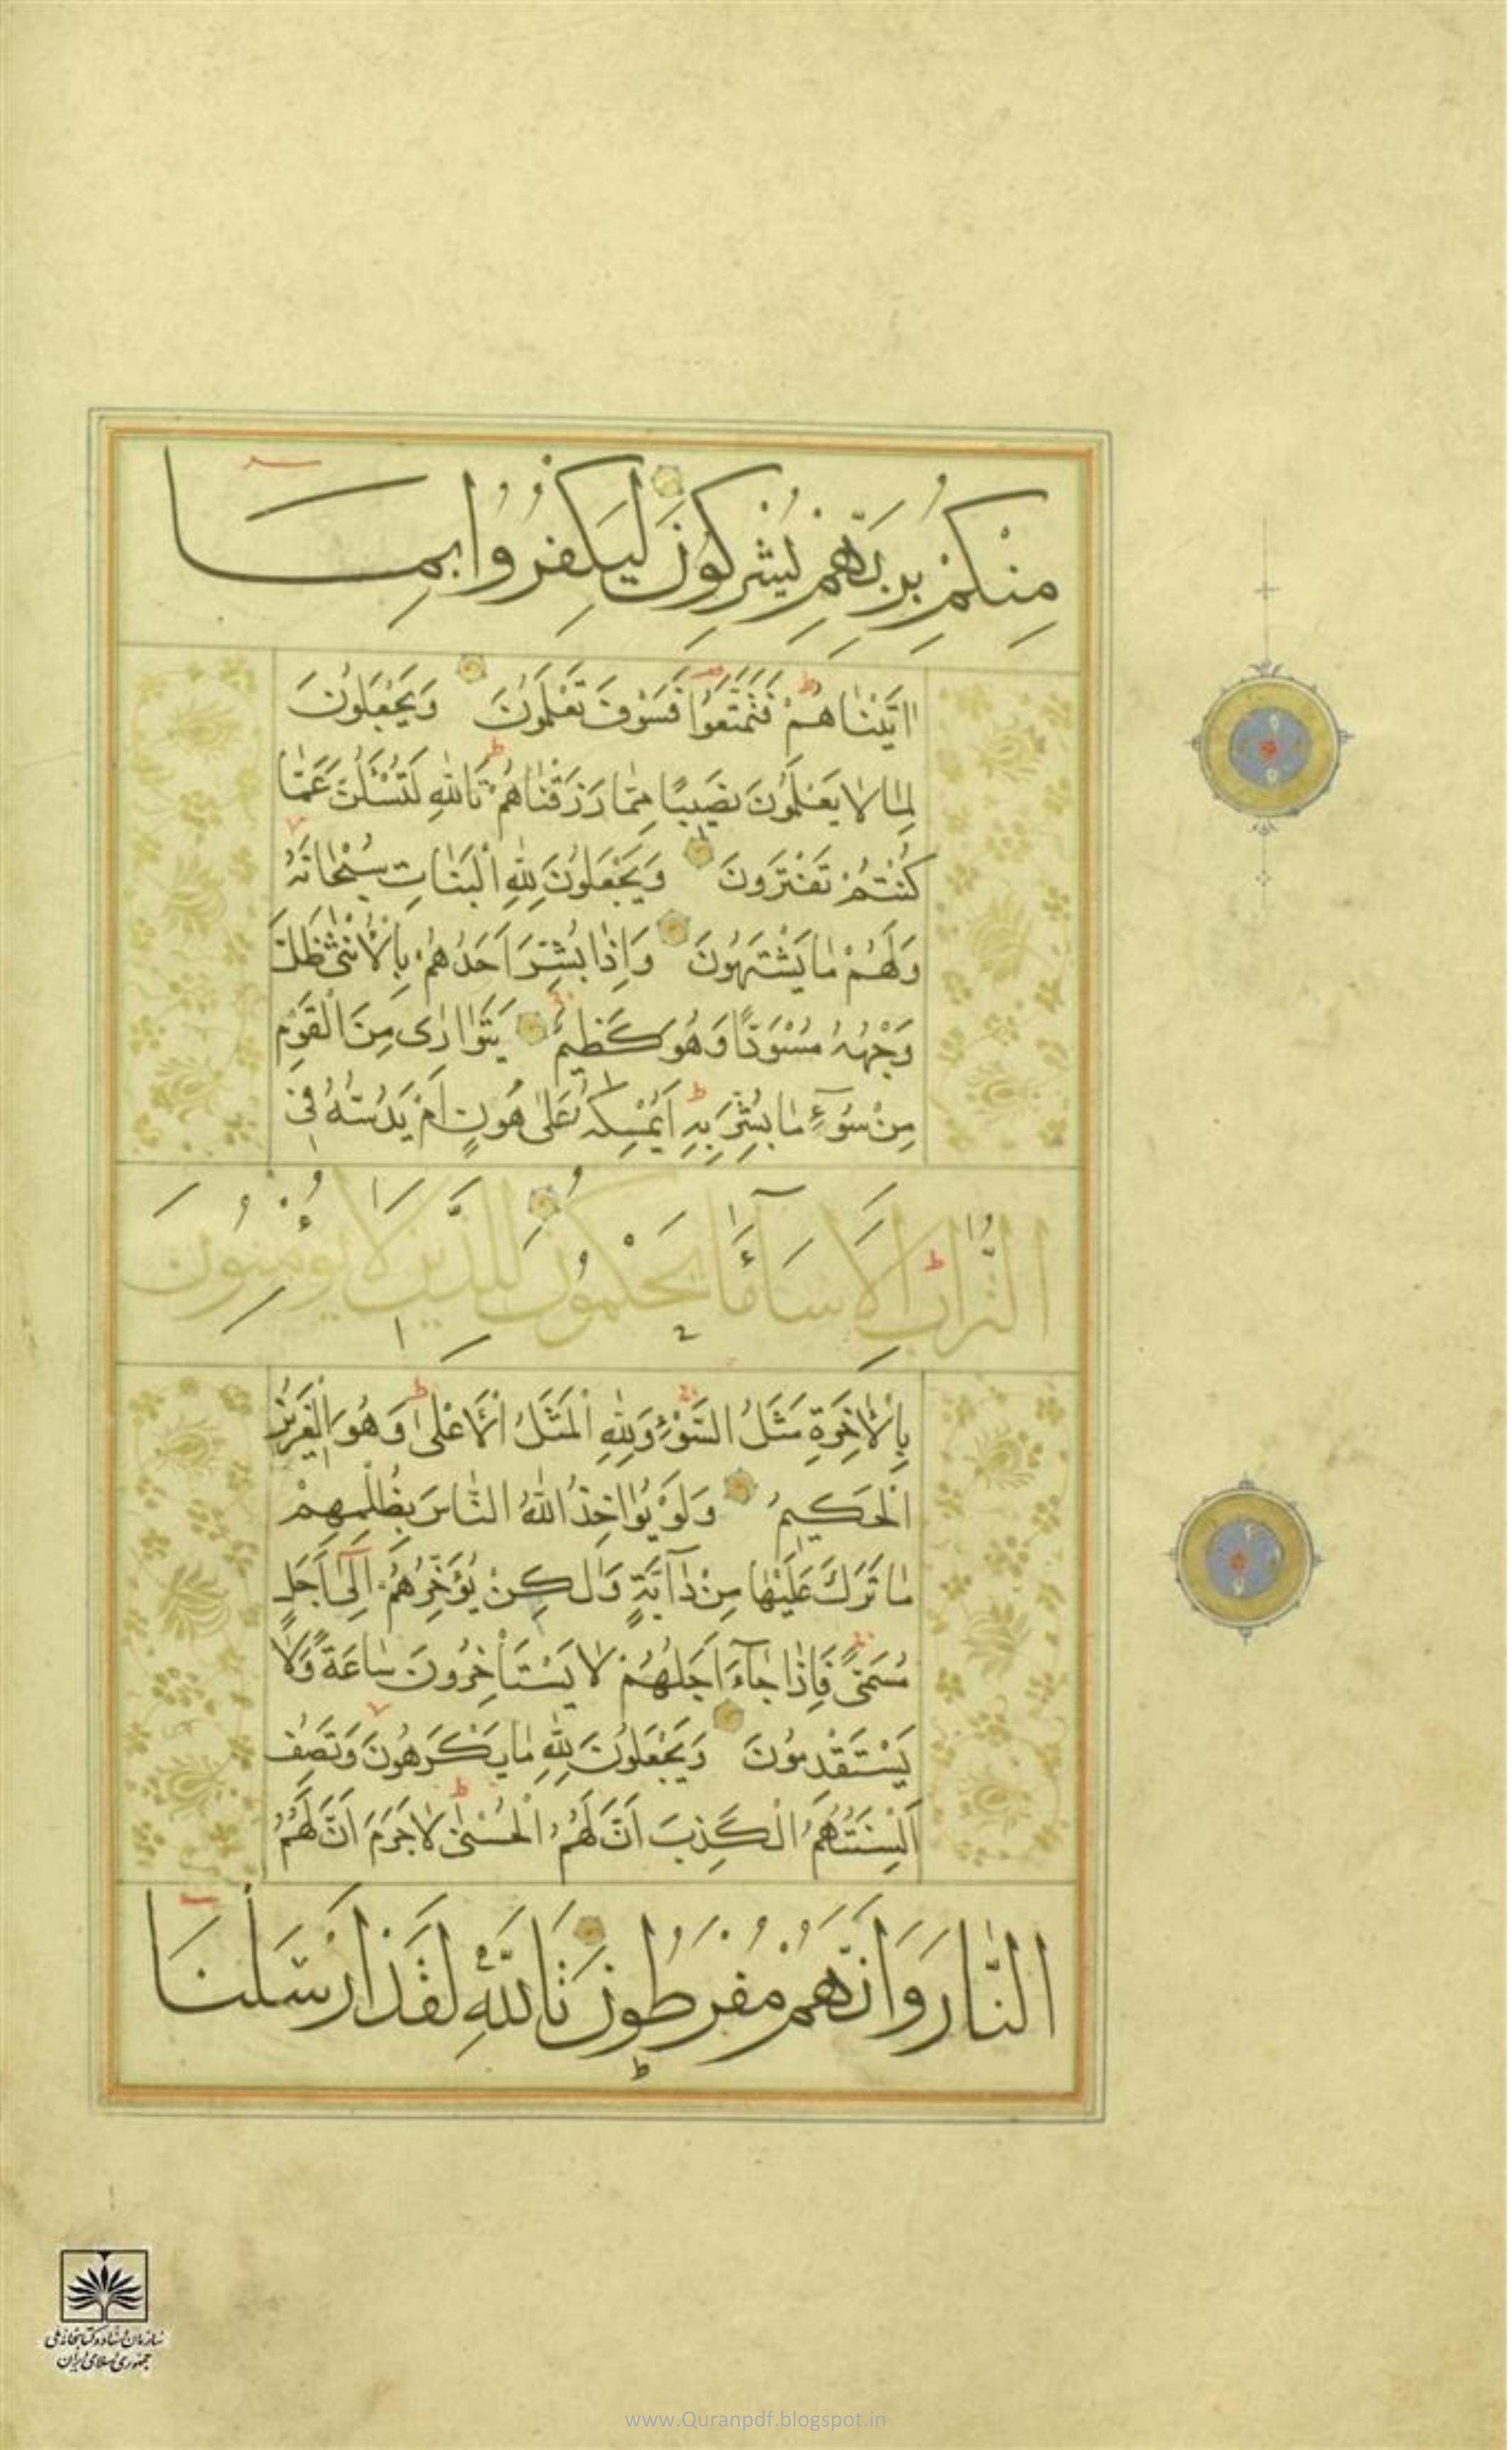 مِنْكُمْ بِرَبِّهِمْ يُشْرِكُونَ لِيَكْفُرُوا بِمَا
اٰتَيْنَاهُمْ فَتَمَتَّعُوا فَسَوْفَ تَعْلَمُونَ وَيَجْعَلُونَ
لِمَا لَا يَعْلَمُونَ نَصِيبًا مِمَّا رَزَقْنَاهُمْ تَاللّٰهِ لَتُسْـَٔلُنَّ عَمَّا
كُنْتُمْ تَفْتَرُونَ وَيَجْعَلُونَ لِلّٰهِ الْبَنَاتِ سُبْحَانَهُ
وَلَهُمْ مَا يَشْتَهُونَ وَاِذَا بُشِّرَ اَحَدُهُمْ بِالْاُنْثٰى ظَلَّ
وَجْهُهُ مُسْوَدًّا وَهُوَ كَظِيمٌ يَتَوَارٰى مِنَ الْقَوْمِ
مِنْ سُوۤءِ مَا بُشِّرَ بِهِ اَيُمْسِكُهُ عَلٰى هُونٍ اَمْ يَدُسُّهُ فِى
التُّرَابِ اَلَا سَاۤءَ مَا يَحْكُمُونَ لِلَّذِينَ لَا يُؤْمِنُونَ
بِالْاٰخِرَةِ مَثَلُ السَّوْءِ وَلِلّٰهِ الْمَثَلُ الْاَعْلٰى وَهُوَ الْعَزِيزُ
الْحَكِيمُ وَلَوْ يُؤَاخِذُ اللّٰهُ النَّاسَ بِظُلْمِهِمْ
مَا تَرَكَ عَلَيْهَا مِنْ دَاۤبَّةٍ وَلٰكِنْ يُؤَخِّرُهُمْ اِلٰۤى اَجَلٍ
مُسَمًّى فَاِذَا جَاۤءَ اَجَلُهُمْ لَا يَسْتَأْخِرُونَ سَاعَةً وَلَا
يَسْتَقْدِمُونَ وَيَجْعَلُونَ لِلّٰهِ مَا يَكْرَهُونَ وَتَصِفُ
اَلْسِنَتُهُمُ الْكَذِبَ اَنَّ لَهُمُ الْحُسْنٰى لَا جَرَمَ اَنَّ لَهُمُ
النَّارَ وَاَنَّهُمْ مُفْرَطُونَ تَاللّٰهِ لَقَدْ اَرْسَلْنَا
سازمان اسناد و کتابخانه ملی
جمهوری اسلامی ایران
www.Quranpdf.blogspot.in